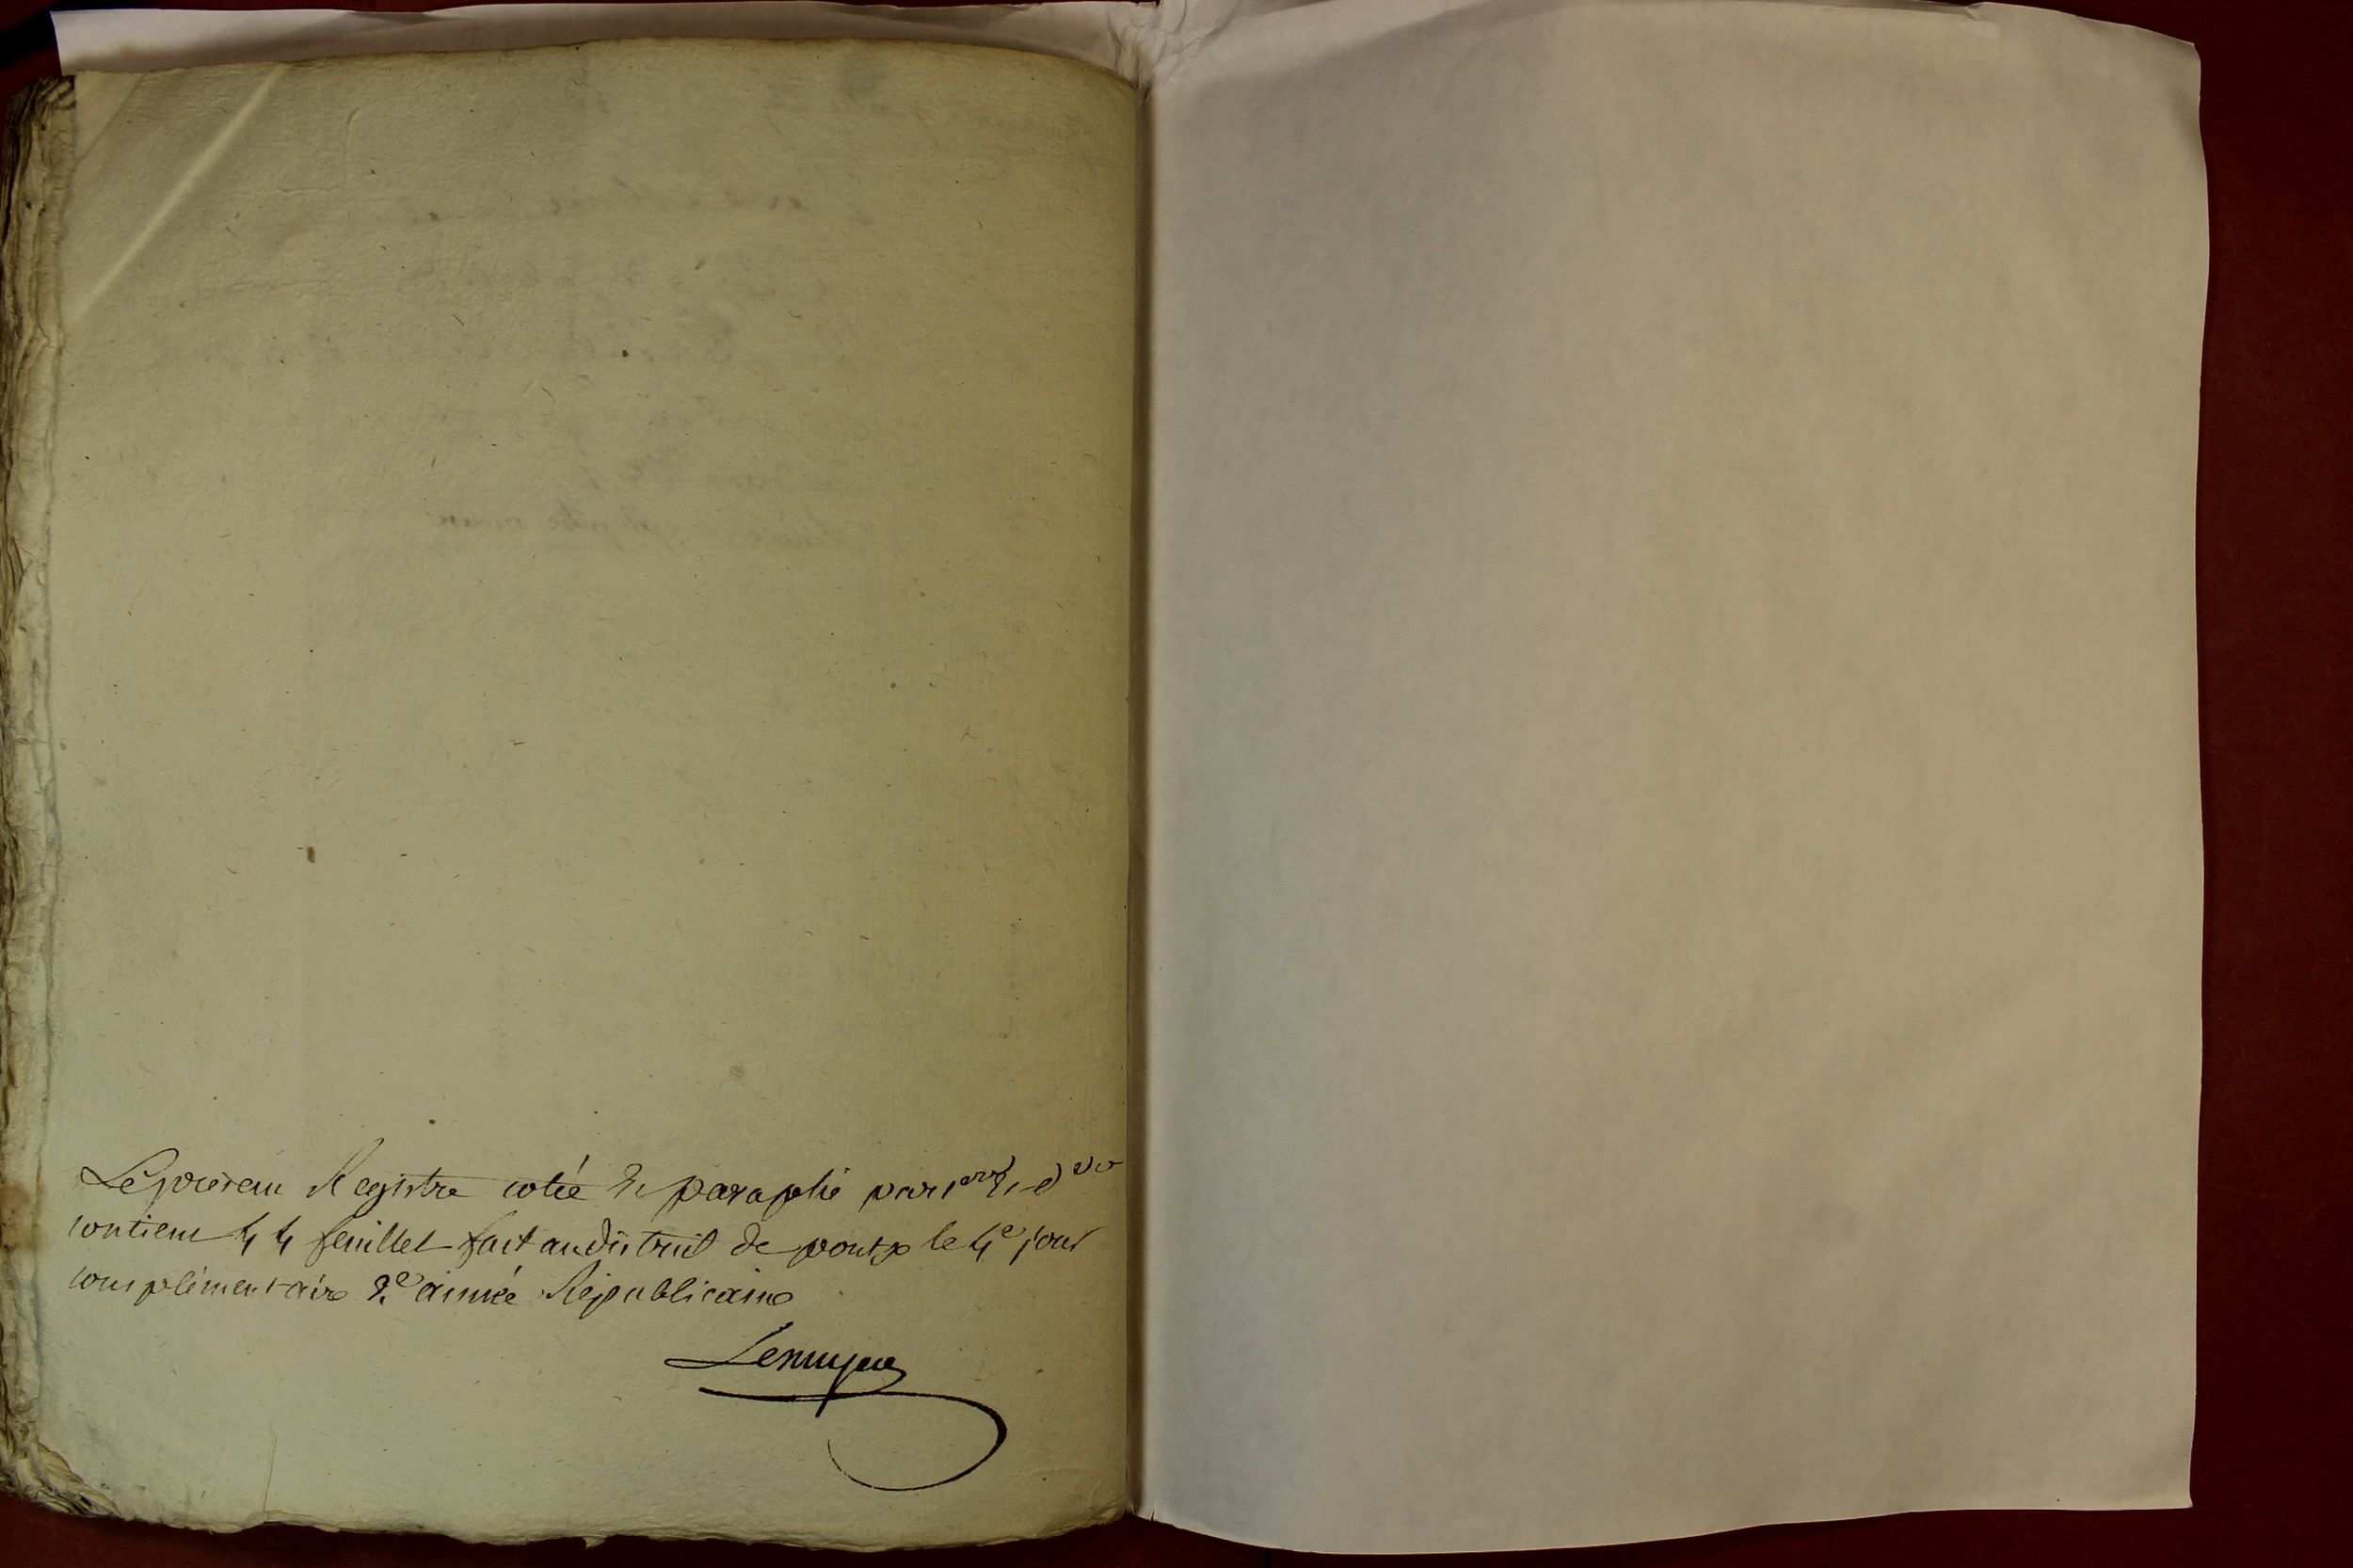 Le présent Registre cotée & paraphé par 1ere & dere
contient 44 feuillet fait au district de pontx le 4e jour
complémentaire 2e année Républicaine